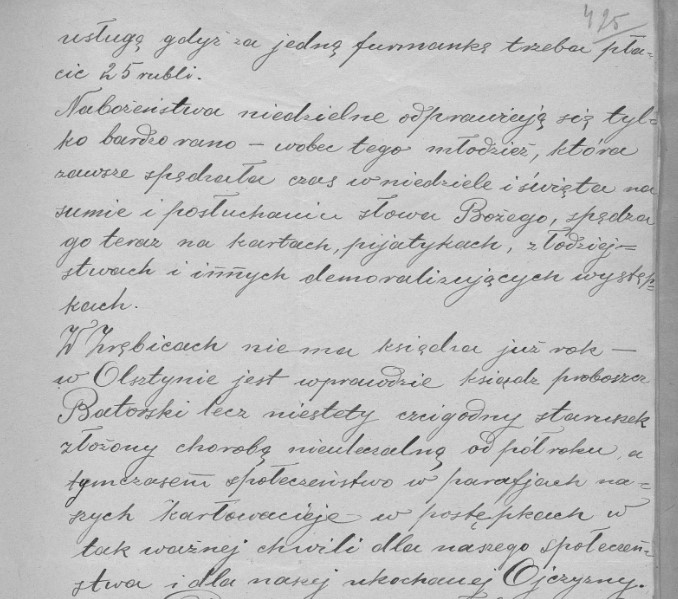 425
usługę gdyż za jedną furmankę trzeba pła-
cic 25 rubli.
Nabożeństwa niedzielne odprawieją się tyl-
ko bardzo rano – wobec tego młodzież, która
zawsze spędzała czas w niedziele i święta na
sumie i posłuchaniu słowa Bożego, spędza
go teraz na kartach, pijatykach, złodziej=
stwach i innych demoralizujących występ-
kach.
W Zrębicach nie ma księdza już rok –
w Olsztynie jest wprawdzie ksiądz proboszcz
Batorski lecz niestety czcigodny staruszek
złożony chorobą nieuleczalną od pół roku, a
tymczasem społeczeństwo w parafjach na=
szych karłowacieje w postępkach w
tak ważnej chwili dla naszego społeczeń-
stwa i dla naszej ukochanej Ojczyzny.